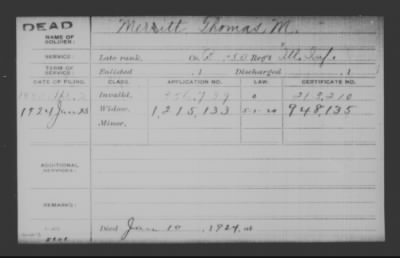 DEAD
Merritt, Thomas M.
NAME OF
SOLDIER:
SERVICE:
Late rank, Co. Reg't Ill. Inf.
TERM OF
SERVICE:
Enlisted , 1 Discharged , 1
DATE OF FILING. CLASS. APPLICATION NO. LAW. CERTIFICATE NO.
Invalid,
1924 Jan 23 Widow, 1,215,133 5-1-20 948,135
Minor,
ADDITIONAL
SERVICES:
REMARKS:
Died Jan 10, 1924, at